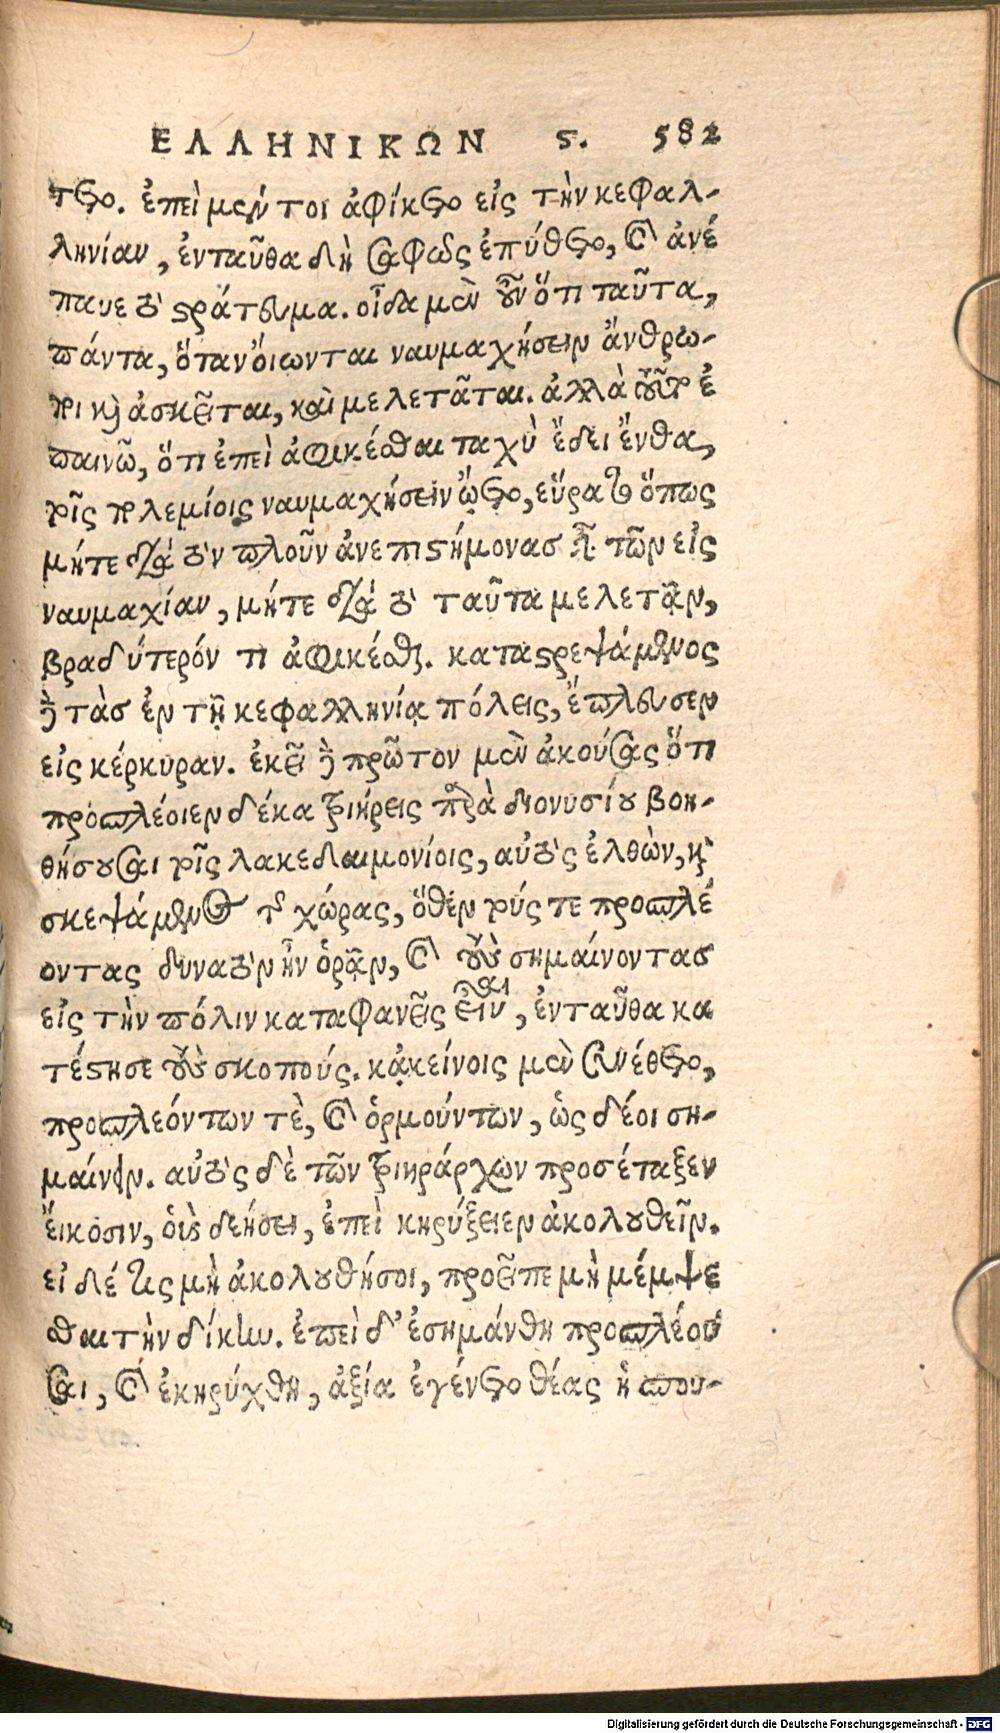 ΕΛΛΗΝΙΚΩΝ ϛ. 582
το. ἐπεὶ μέν τοι ἀφίκετο εἰς τὴν κεφαλ-
ληνίαν, ἐνταῦθα δὴ σαφῶς ἐπύθετο, καὶ ἀνέ
παυε τὸ στράτευμα. οἶδα μὲν οὖν ὅτι ταῦτα,
πάντα, ὅταν ὄιωνται ναυμαχήσειν ἄνθρω-
ποι καὶ ἀσκεῖται, καὶ μελετᾶται. ἀλλὰ τοῦτο ἐ
παινῶ, ὅτι ἐπεὶ ἀφικέσθαι ταχὺ ἔδει ἔνθα,
τοῖς πολεμίοις ναυμαχήσειν ᾤετο, εὕρατο ὅπως
μήτε διὰ τὸν πλοῦν ἀνεπιστήμονας εἶναι τῶν εἰς
ναυμαχίαν, μήτε διὰ τὸ ταῦτα μελετᾷν,
βραδύτερόν τι ἀφικέσθαι. καταστρεψάμενος
δὲ τὰς ἐν τῇ κεφαλληνίᾳ πόλεις, ἔπλευσεν
εἰς κέρκυραν. ἐκεῖ δὲ πρῶτον μὲν ἀκούσας ὅτι
προσπλέοιεν δέκα τριήρεις παρὰ διονυσίου βοη-
θήσουσαι τοῖς λακεδαιμονίοις, αὐτὸς ἐλθὼν, καὶ
σκεψάμενος τῆς χώρας, ὅθεν τούς τε προσπλέ
οντας δυνατὸν ἦν ὁρᾷν, καὶ τοὺς σημαίνοντας
εἰς τὴν πόλιν καταφανεῖς εἶναι, ἐνταῦθα κα
τέστησε τοὺς σκοπούς. κᾀκείνοις μὲν συνέθετο,
προσπλεόντων τὲ, καὶ ὁρμούντων, ὡς δέοι ση-
μαίνειν. αὐτὸς δὲ τῶν τριηράρχων προσέταξεν
ἔικοσιν, οἷς δεήσει, ἐπεὶ κηρύξειεν ἀκολουθεῖν.
εἰ δέ τις μὴ ἀκολουθήσοι, προεῖπε μὴ μέμψε
σθαι τὴν δίκην. ἐπεὶ δ’ ἐσημάνθη προσπλέου
σαι, καὶ ἐκηρύχθη, ἀξία ἐγένετο θέας ἡ σπου-
Digitalisierung gefördert durch die Deutsche Forschungsgemeinschaft - DFG